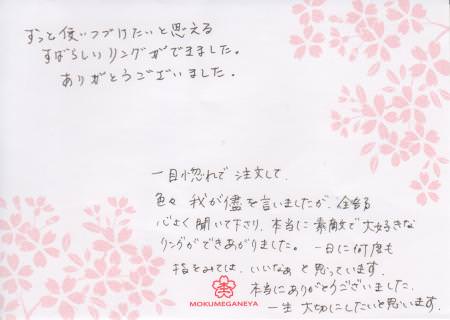 ずっと使いつづけたいと思える
すばらしいリングができました。
ありがとうございました。
一目惚れで注文して、
色々 我が儘を言いましたが、全部
心よく聞いて下さり、本当に素敵で大好きな
リングができあがりました。一日に何度も
指をみては、いいなぁと思っています。
本当にありがとうございました。
一生大切にしたいと思います。
MOKUMEGANEYA